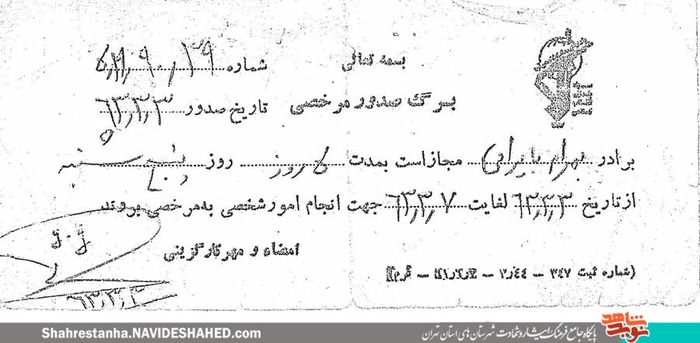 بسمه تعالی
شماره
برگ صدور مرخصی
تاریخ صدور ۶۳٫۳٫۳
برادر بهرام مجاز است بمدت ۵ روز روز پنج شنبه
از تاریخ ۶۳٫۳٫۳ لغایت ۶۳٫۳٫۷ جهت انجام امور شخصی به مرخصی بروند
امضاء و مهر کارگزینی
۶۳٫۳٫۳
(شماره ثبت ۳۴۷ – ۲٫۴۴ –
شاهد
نوید
پایگاه جامع فرهنگ ایثار و شهادت شهرستان های استان تهران
Shahrestanha.NAVIDESHAHED.com